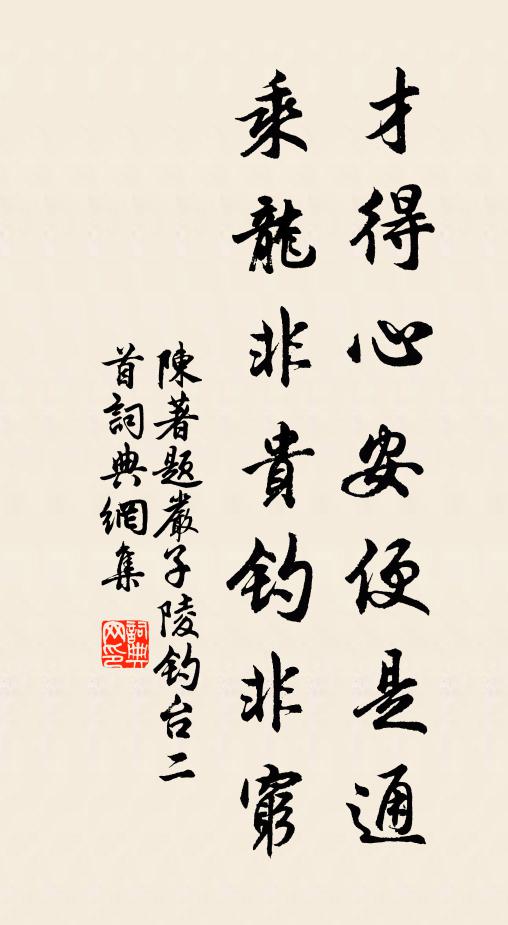 才得心安便是通
乘龍非貴钓非窮
陳著题嚴子陵钓台二
首詞典網集
詞典网印